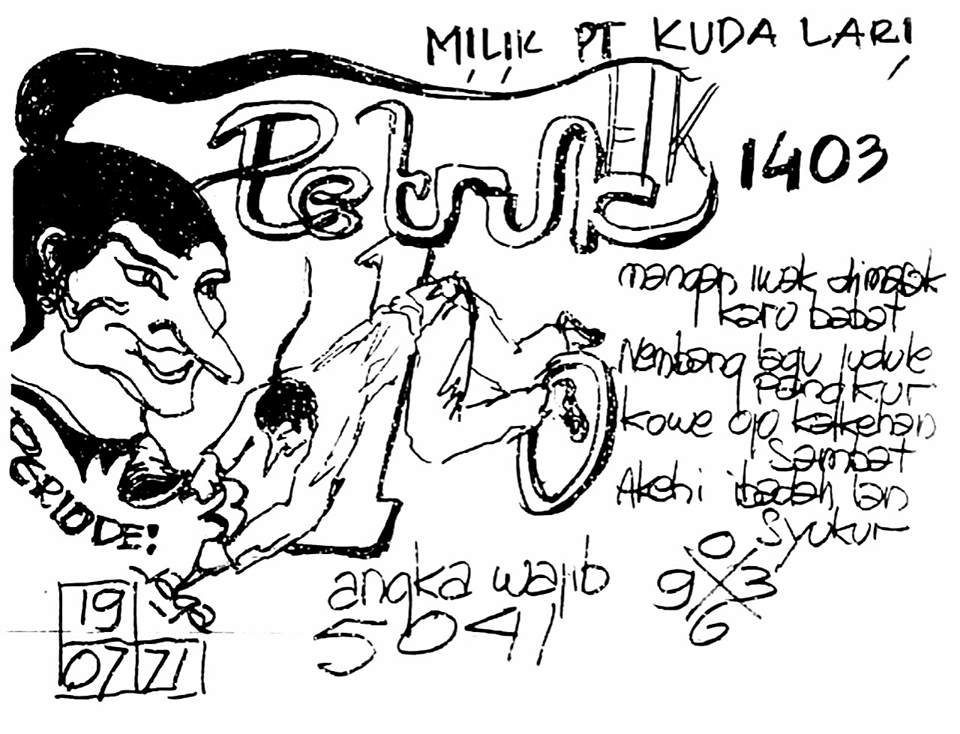 MILIK PT KUDA LARI
Petruk
1403
mangan Iwak dimasak
karo babat
Nembang lagu judule
Pangkur
kowe ojo kakehan
Sambat
Akehi ibadah lan
Syukur
PERIODE!
angka wajib
5041
0
9 3
6
19
07 71